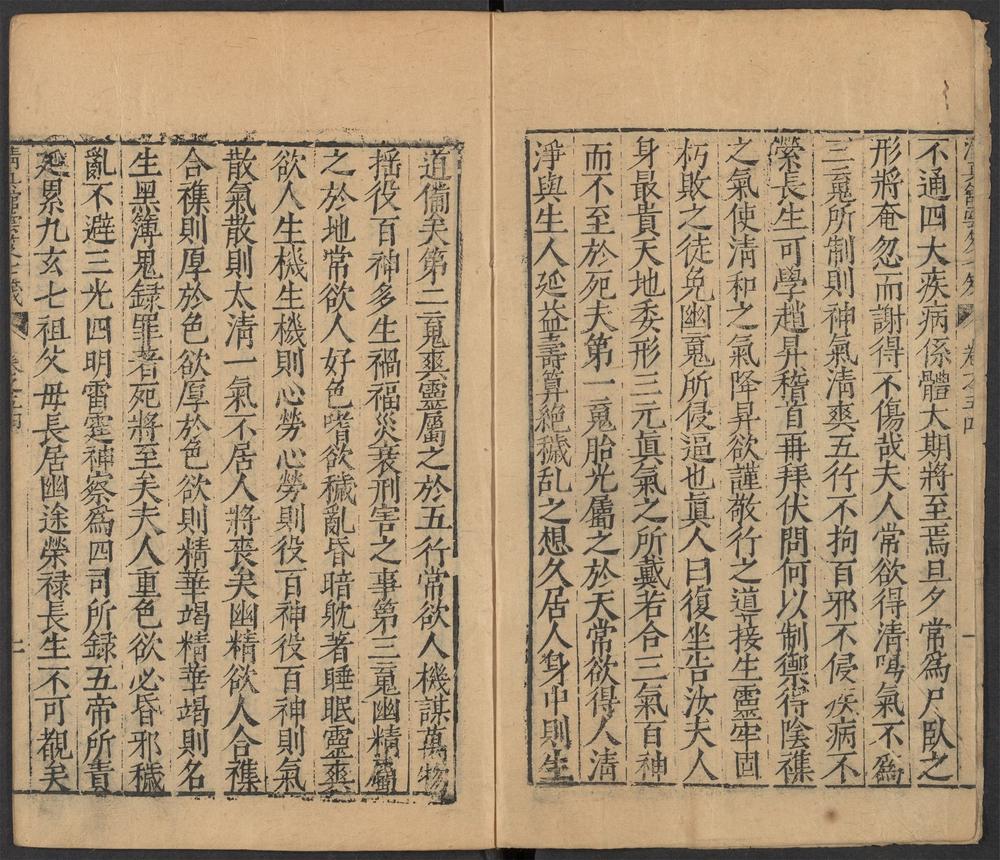 不通四大疾病係體大期將至焉旦夕常爲尸臥之
形將奄忽而謝得不傷哉夫人常欲得清鳴氣不爲
三䰟所制則神氣清爽五行不拘百邪不侵疾病不
縈長生可學趙昇稽首再拜伏問何以制禦得陰襍
之氣使清和之氣降昇欲謹敬行之導接生靈牢固
朽敗之徒免幽䰟所侵逼也眞人曰復坐告汝夫人
身最貴天地委形三元眞氣之所戴若合三氣百神
而不至於死夫第一䰟胎光屬之於天常欲得人清
淨與生人延益壽算絶穢乱之想久居人身中則生
道備矣第二䰟爽靈屬之於五行常欲人機謀萬物
揺役百神多生禍福災衰刑害之事第三䰟幽精屬
之於地常欲人好色嗜欲穢亂昏暗躭著睡眠靈爽
欲人生機生機則心勞心勞則役百神役百神則氣
散氣散則太清一氣不居人將喪矣幽精欲人合襍
合襍則厚於色欲厚於色欲則精華竭精華竭則名
生黑簿鬼録罪著死將至矣夫人重色欲必昏邪穢
亂不避三光四明雷霆神察爲四司所録五帝所責
延累九玄七祖父母長居幽途榮禄長生不可觀矣